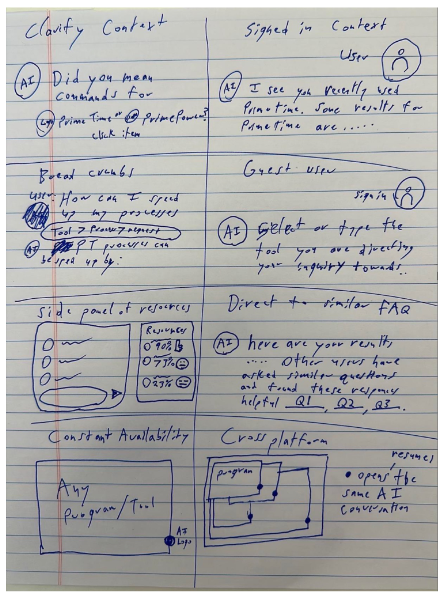 Clarify Context
AI Did you mean
commands for
Logo PrimeTime or Logo PrimePower?
click item
Signed in Context
User
AI I see you recently used
Primetime. Some results for
Primetime are .....
Bread crumbs
user: How can I speed
up my processes
Tool > Power > request
AI PT processes can
be sped up by:
Guest user
Sign in
AI Select or type the
tool you are directing
your inquiry towards..
Side panel of resources
Resources
90%
73%
23%
Direct to similar FAQ
AI here are your results
.... Other users have
asked similar questions
and found these responses
helpful Q1, Q2, Q3.
Constant Availability
Any
program/Tool
AI
Logo
Cross platform
program
resumes
opens the
same AI
conversation